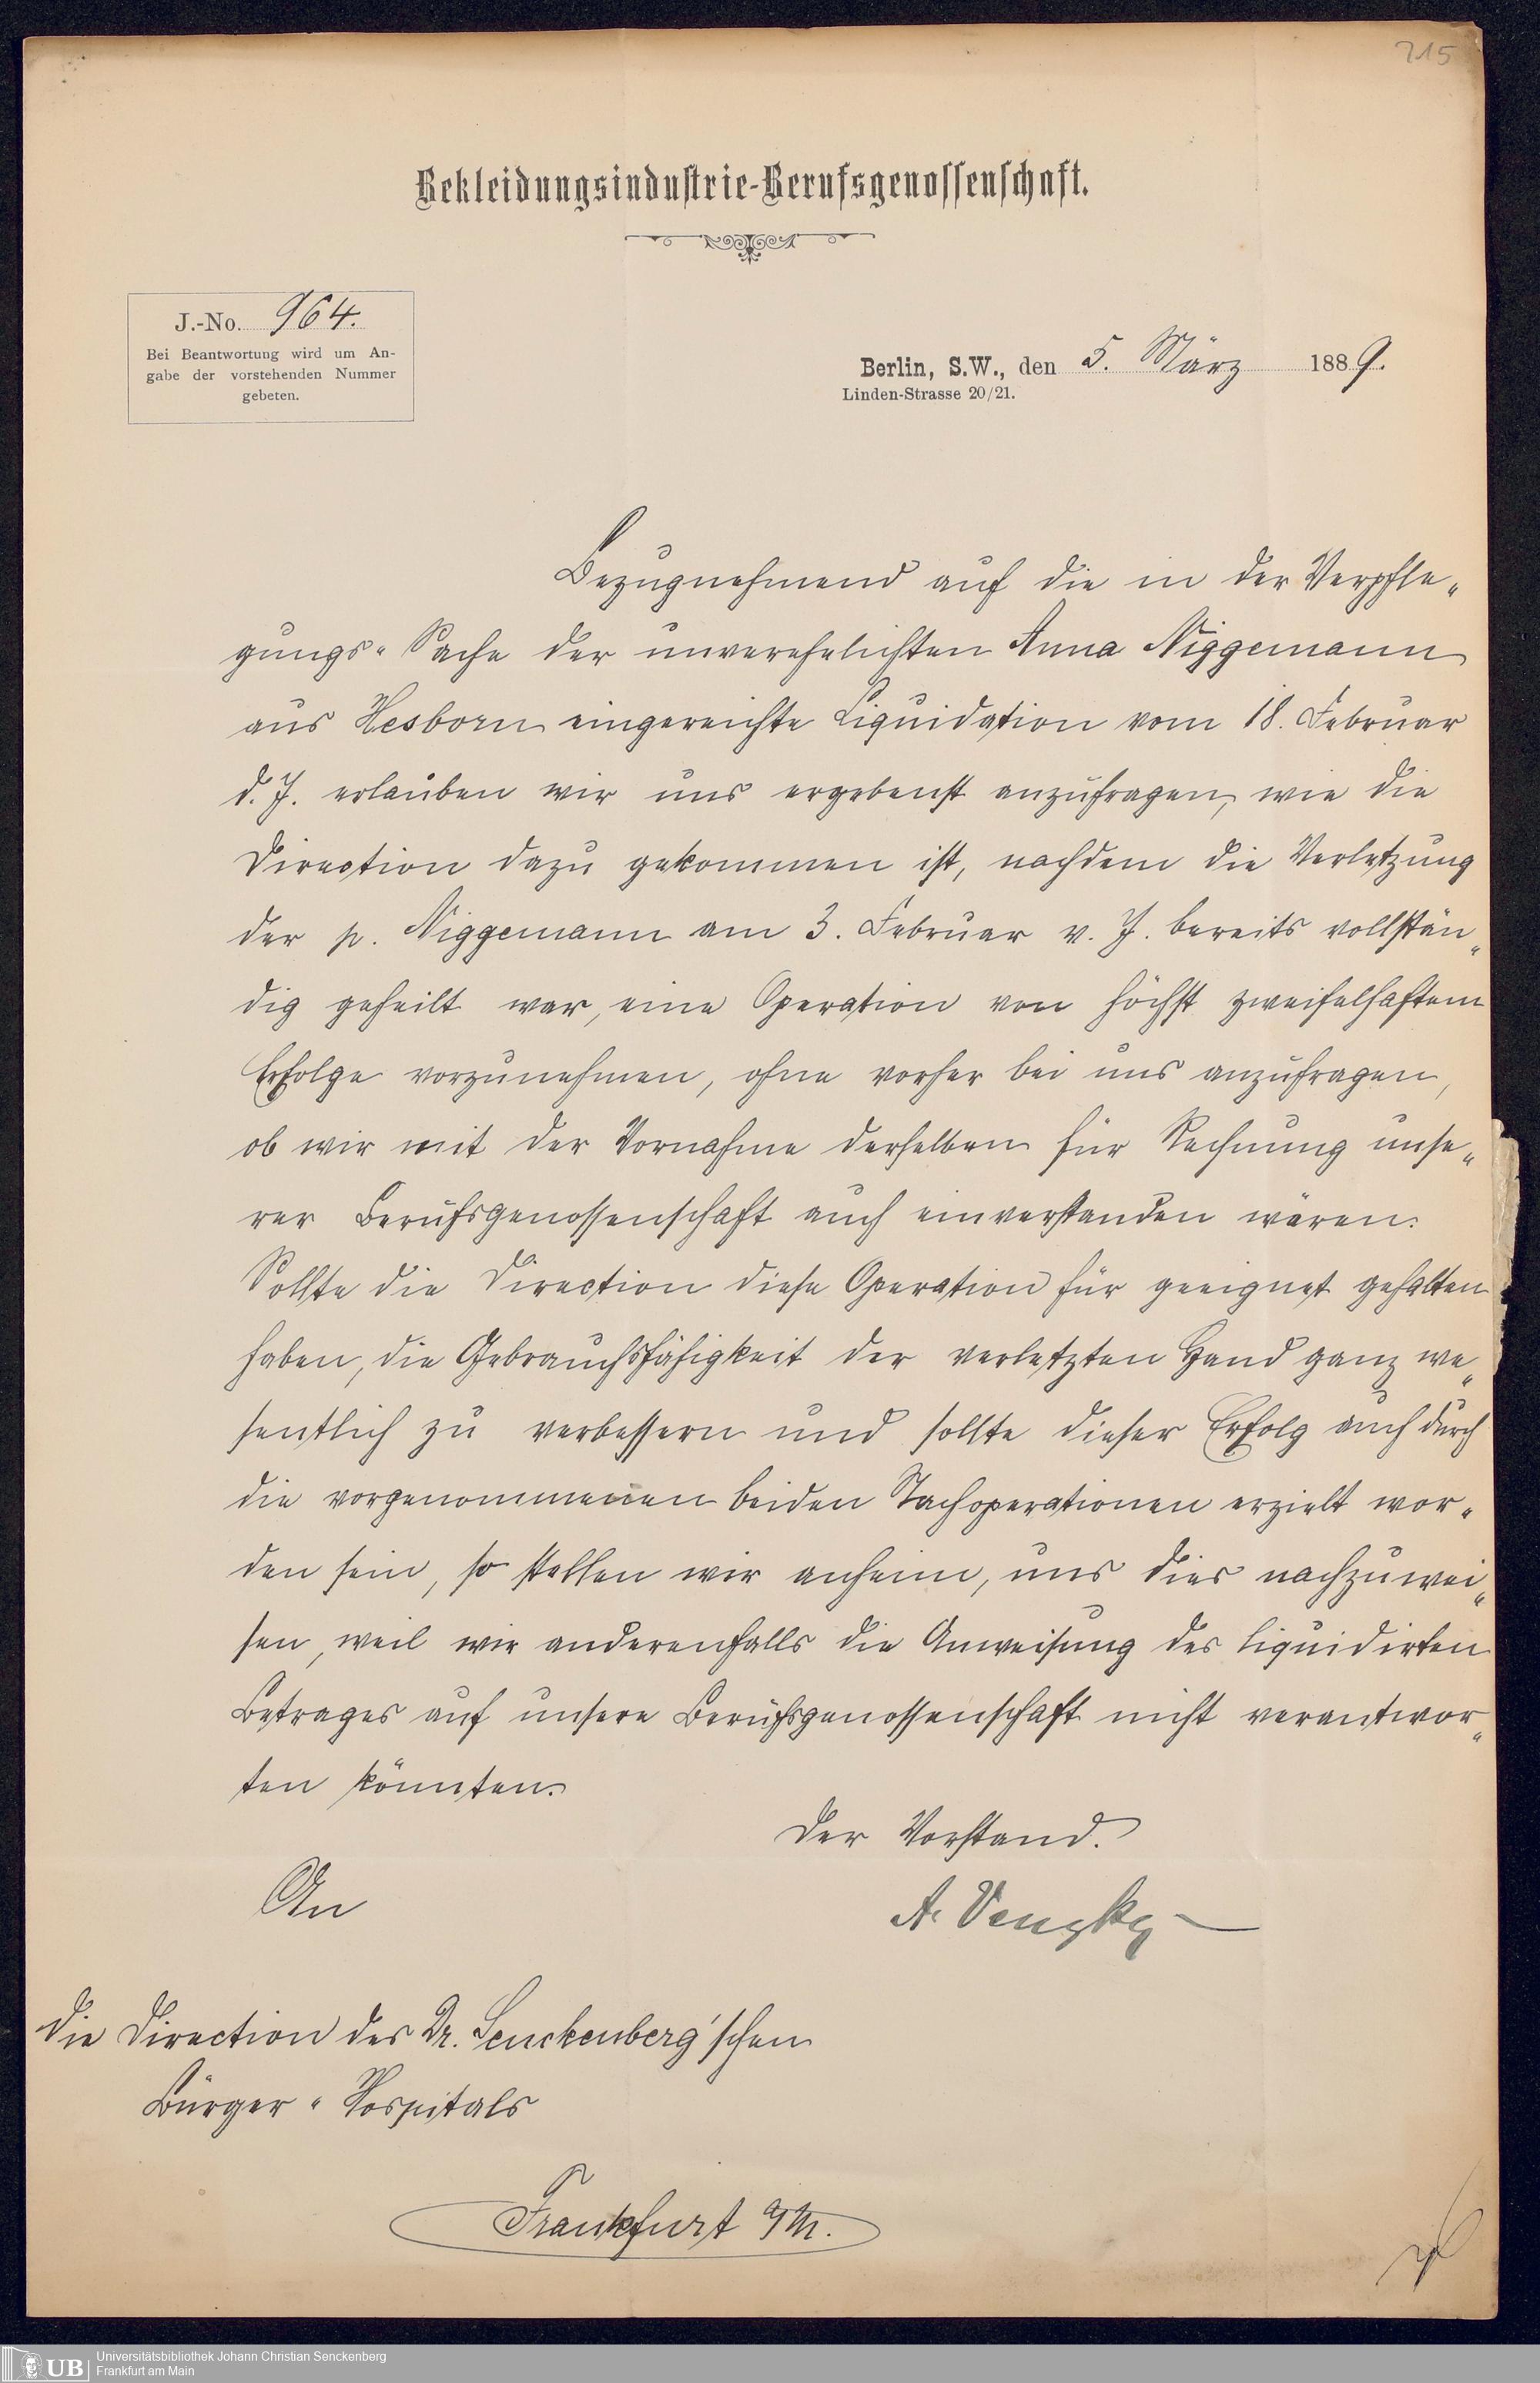 215
Bekleidungsindustrie-Berufsgenossenschaft.
J.-No. 964.
Bei Beantwortung wird um An-
gabe der vorstehenden Nummer
gebeten.
Berlin, S.W., den 5. März 1889.
Linden-Strasse 20/21.
Bezugnehmend auf die in der Verpfle-
gungs-Sache der unverehelichten Anna Niggemann
aus Hesborn eingereichte Liquidation vom 18. Februar
d. J. erlauben wir uns ergebenst anzufragen, wie die
Direction dazu gekommen ist, nachdem die Verletzung
der p. Niggemann am 3. Februar v. J. bereits vollstän-
dig geheilt war, eine Operation von höchst zweifelhaftem
Erfolge vorzunehmen, ohne vorher bei uns anzufragen,
ob wir mit der Vornahme derselben für Rechnung unse-
rer Berufsgenossenschaft auch einverstanden wären.
Sollte die Direction diese Operation für geeignet gehalten
haben, die Gebrauchsfähigkeit der verletzten Hand ganz we-
sentlich zu verbessern und sollte dieser Erfolg auch durch
die vorgenommenen beiden Nachoperationen erzielt wor-
den sein, so stellen wir anheim, uns dies nachzuwei-
sen, weil wir anderenfalls die Anweisung des liquidirten
Betrages auf unsere Berufsgenossenschaft nicht verantwor-
ten könnten.
Der Vorstand.
A. Venzky
An
die Direction des Dr. Senckenberg'schen
Bürger-Hospitals
Frankfurt a/M.
UB
Universitätsbibliothek Johann Christian Senckenberg
Frankfurt am Main